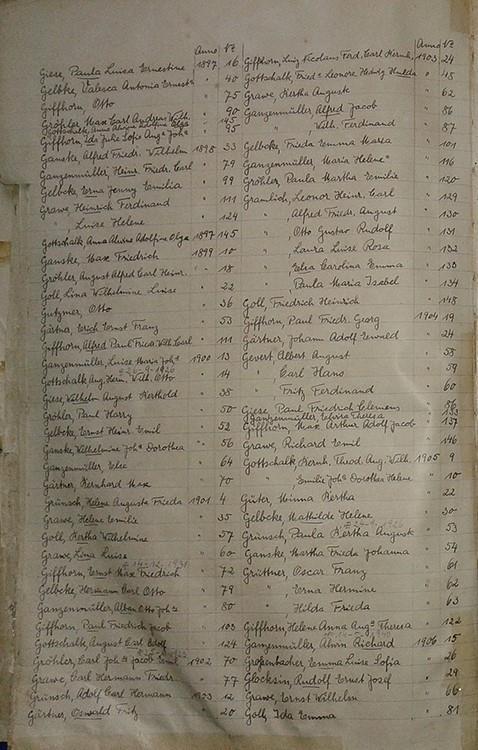 Anno Nr
Giese, Paula Luisa Ernestine 1897 16
Gelbtke, Valesca Antonia Ernest " 40
Giffhorn, Otto " 75
Gröhler, Max Carl Andreas Wilh. " 90
Gottschalk, Anna Alwine Adolfine Olga 145
Giffhorn, Ida Julie Sofie Aug. Joh. " 95
Ganske, Alfred Friedr. Wilhelm 1898 33
Ganzenmüller, Heinr. Friedr. Carl " 79
Gelbcke, Erna Jenny Emilia " 99
Grawe, Heinrich Ferdinand " 111
", Luise Helene " 124
Gottschalk, Anna Alwine Adolfine Olga 1897 145
Ganske, Max Friedrich 1899 10
Gröhler August Alfred Carl Heinr. " 18
Goll, Lina Wilhelmine Luise " 22
Gutzmer, Otto " 36
Gärtner, Erich Ernst Franz " 53
Giffhorn, Alfred Paul Friedr. Wilh. Carl " 111
Ganzenmüller, Luise Maria Joh. 1900 13
Gottschalk, Aug. Heinr. Wilh. Otto " 14
Giese, Wilhelm August Berthold " 38
Gröhler, Paul Harry " 50
Gelbcke, Ernst Heinr. Emil " 52
Ganske, Wilhelmine Joh. Dorothea " 56
Ganzenmüller, Else " 64
Gärtner, Bernhard Max " 70
Grünsch, Helene Auguste Frieda 1901 4
Grawe, Helene Emilie " 35
Goll, Bertha Wilhelmine " 57
Grawe, Lina Luise " 60
Giffhorn, Ernst Max Friedrich " 72
Gelbcke Hermann Carl Otto " 79
Ganzenmüller, Alban Otto Joh. " 80
Giffhorn, Paul Friedrich Jacob " 103
Gottschalk, August Carl Adolf " 124
Gröhler, Carl Joh. Jacob Emil 1902 70
Grawe, Carl Hermann Friedr. " 77
Grünsch, Adolf Carl Hermann 1903 12
Gärtner, Oswald Fritz " 20
Anno Nr
Giffhorn, Luig Nicolaus Ferd. Carl Hernh. 1903 24
Gottschalk, Fred. Leonore Hedwig Hulda " 48
Grawe, Bertha Auguste " 62
Ganzenmüller, Alfred Jacob " 86
" Wilh. Ferdinand " 87
Gelbcke, Frieda Emma Maria " 101
Ganzenmüller, Maria Helene " 116
Gröhler, Paula Martha Emilie " 120
Gramlich, Leonor Heinr. Carl " 129
", Alfred Friedr. August " 130
", Otto Gustav Rudolf " 131
", Laura Luise Rosa " 132
", Elia Carolina Emma " 133
", Paula Maria Isabel " 134
Goll, Friedrich Heinrich " 148
Giffhorn, Paul Friedr. Georg 1904 19
Gärtner, Johann Adolf Ewald " 24
Gevert Albert August " 58
", Carl Hans " 59
", Fritz Ferdinand " 60
Giese, Paul Friedrich Clemens " 86
Ganzenmüller, Theresa " 133
Giffhorn, Max Arthur Adolf Jacob " 137
Grawe, Richard Emil " 146
Gottschalk, Bernh. Theod. Aug. Wilh. 1905 9
" Emilie Joh. Dorothea Helene " 10
Güter, Minna Bertha " 22
Gelbcke, Mathilde Helene " 30
Grünsch, Paula Bertha August " 53
Ganske Martha Frieda Johanna " 54
Grüttner, Oscar Franz " 61
", Erna Hermine " 62
", Hilda Frieda " 63
Giffhorn, Helene Anna Aug. Theresa " 122
Ganzenmüller, Alwin Richard 1906 15
Großenbacher, Emma Luise Sofia " 26
Glocksin, Rudolf Ernst Josef " 29
Grawe, Ernst Wilhelm " 66
Goll, Ida Emma " 81